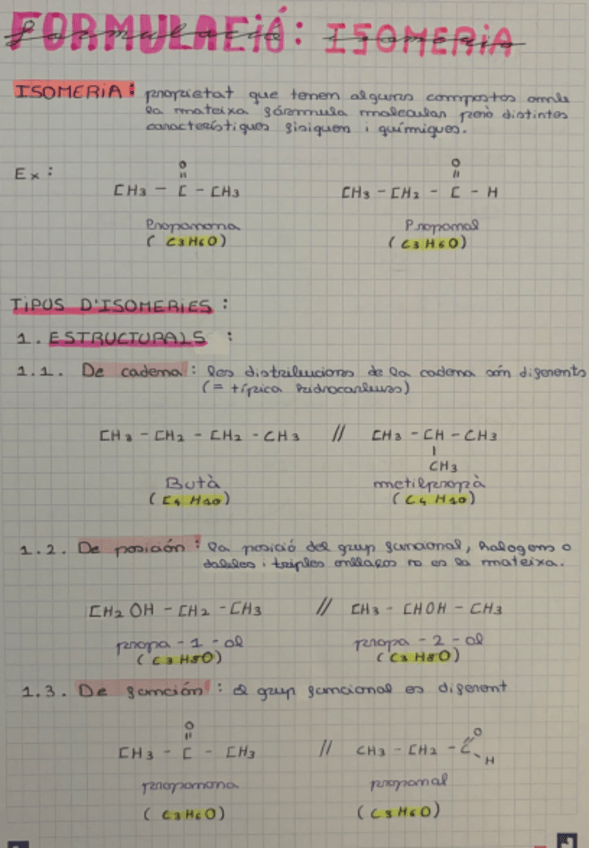 FORMULACIÓ: ISOMERIA
ISOMERIA: propietat que tenen alguns compostos amb
la mateixa fórmula molecular però distintes
característiques físiques i químiques.
Ex:
O O
|| ||
CH3 - C - CH3 CH3 - CH2 - C - H
Propanona Propanal
(C3H6O) (C3H6O)
TIPUS D'ISOMERIES:
1. ESTRUCTURALS:
1.1. De cadena: les distribucions de la cadena són diferents
(= típica hidrocarburs)
CH3 - CH2 - CH2 - CH3 // CH3 - CH - CH3
|
CH3
Butà metilpropà
(C4H10) (C4H10)
1.2. De posición: la posició del grup funcional, halogens o
dobles i triples enllaços no es la mateixa.
CH2OH - CH2 - CH3 // CH3 - CHOH - CH3
propa - 1 - ol propa - 2 - ol
(C3H8O) (C3H8O)
1.3. De función: el grup funcional es diferent
O
||
CH3 - C - CH3 // CH3 - CH2 - C O H
propanona propanal
(C3H6O) (C3H6O)